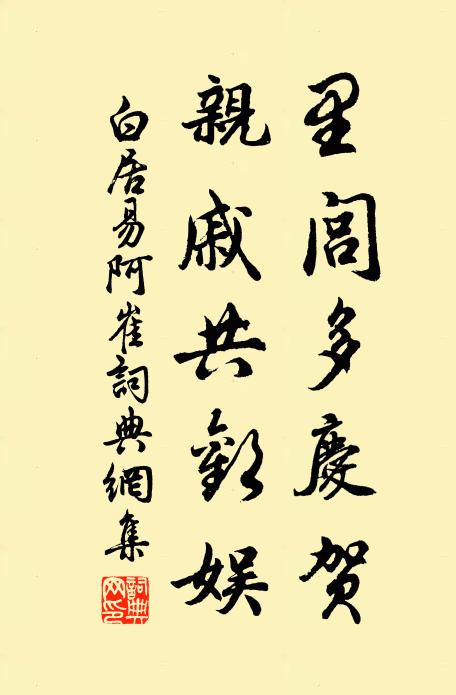 里閭多慶賀
親戚共歡娛
白居易阿崔詞典網集
詞典
網印